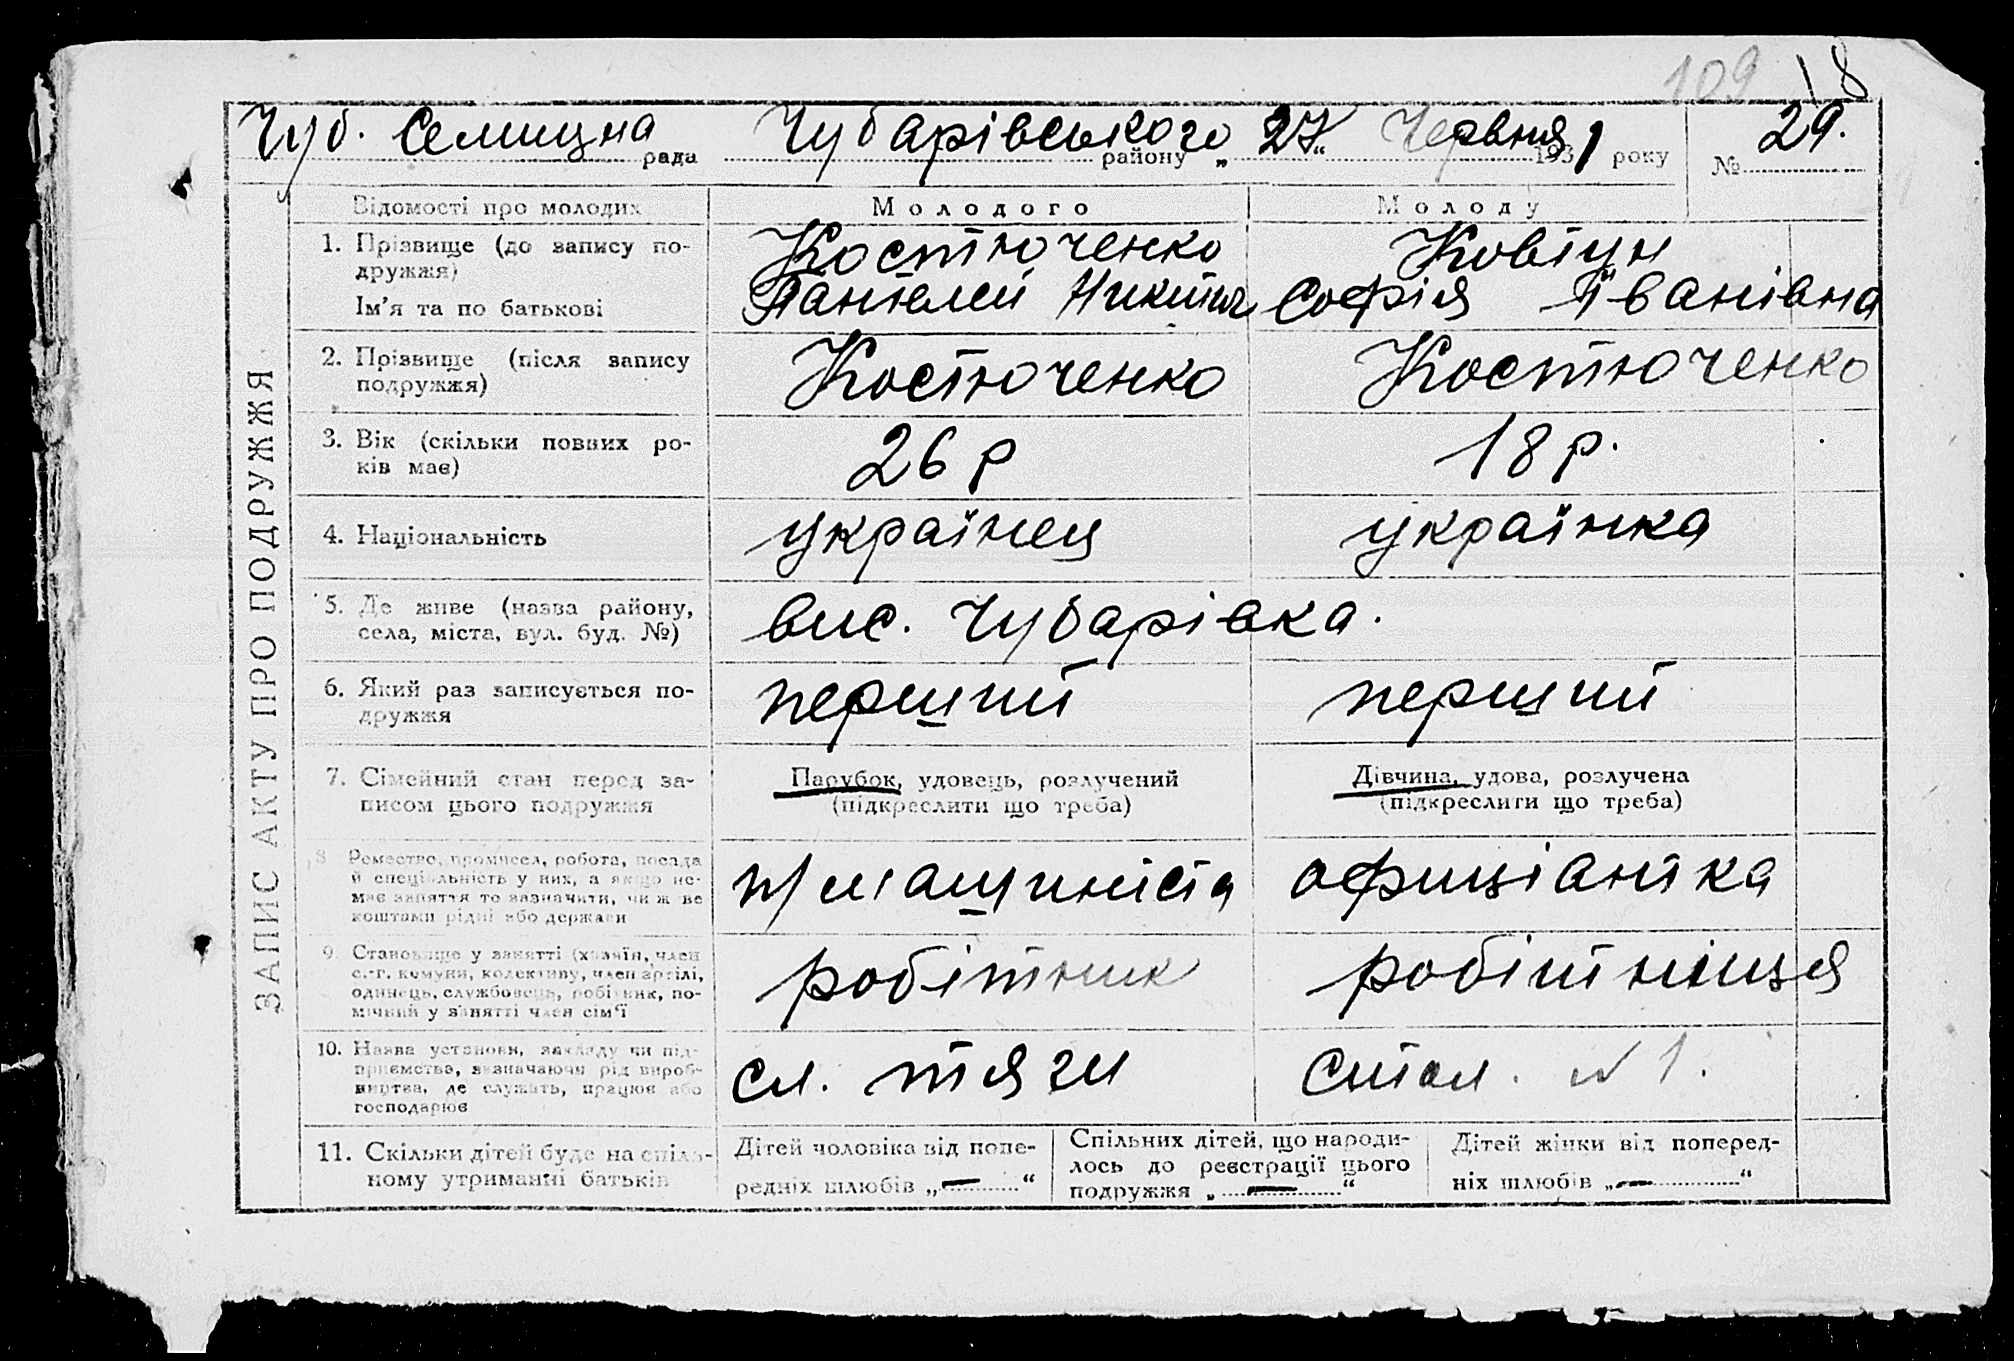 109 18
Чуб. Селищна рада Чубарівського району „27“ Червня 1931 року № 29.
ЗАПИС АКТУ ПРО ПОДРУЖЖЯ
Відомості про молодих
Молодого
Молоду
1. Прізвище (до запису по-
дружжя)
Ім'я та по батькові
Костюченко
Пантелей Никитич
Ковтун
Софія Іванівна
2. Прізвище (після запису
подружжя)
Костюченко
Костюченко
3. Вік (скільки повних ро-
ків має)
26 р
18 р.
4. Національність
українець
українка
5. Де живе (назва району,
села, міста, вул. буд. №)
вис. Чубарівка.
6. Який раз записується по-
дружжя
перший
перший
7. Сімейний стан перед за-
писом цього подружжя
Парубок, удовець, розлучений
(підкреслити що треба)
Дівчина, удова, розлучена
(підкреслити що треба)
8 Ремество, промисел, робота, посада
й спеціальність у них, а якщо не-
має заняття то зазначити, чи живе
коштами рідні або держави
п/машиніста
офиціантка
9. Становище у занятті (хазяїн, член
с.-г. комуни, колективу, член артілі,
одинець, службовець, робітник, по-
мічний у занятті член сім'ї
робітник
робітниця
10. Назва установи, закладу чи під-
приємства, зазначаючи рід вироб-
ництва, де служить, працює або
господарює
сл. тяги
стол. №1.
11. Скільки дітей буде на спіль-
ному утриманні батьків
Дітей чоловіка від попе-
редніх шлюбів „—“
Спільних дітей, що народи-
лось до реєстрації цього
подружжя „—“
Дітей жінки від поперед-
ніх шлюбів „—“